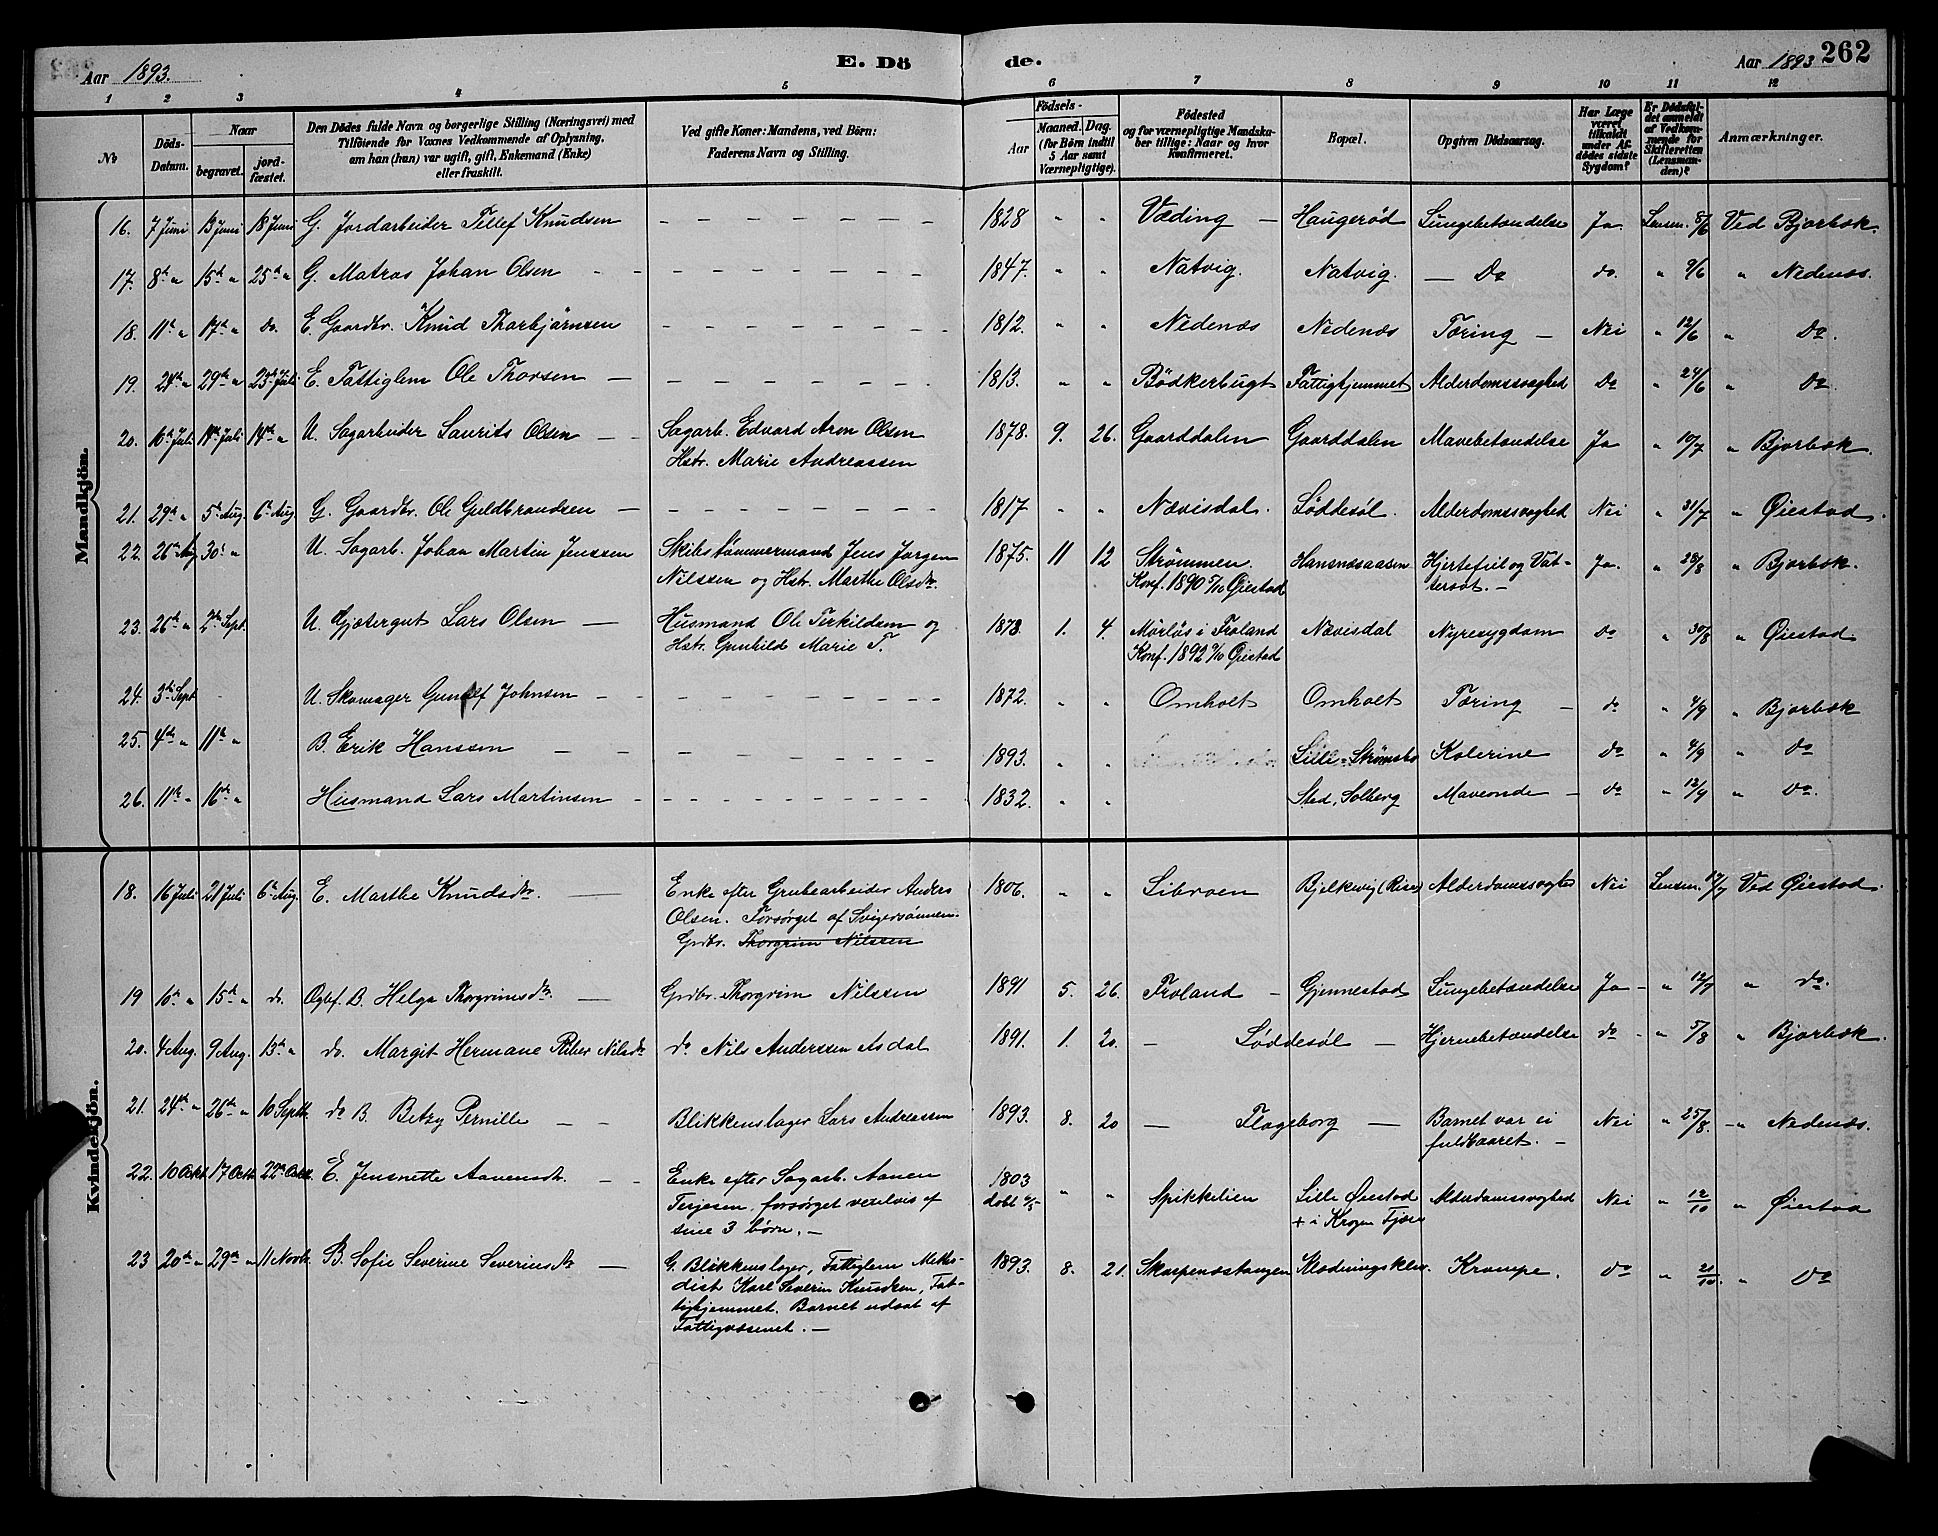 Aar 1893. E. Dö de. Aar 1893 262
1 2 3 4 5 6 7 8 9 10 11 12
No
Döds-
Datum.
Naar
begravet.
jord-
fæstet.
Den Dödes fulde Navn og borgerlige Stilling (Næringsvei) med
Tilföiende for Voxnes Vedkommende af Oplysning,
om han (hun) var ugift, gift, Enkemand (Enke)
eller fraskilt.
Ved gifte Koner: Mandens, ved Börn:
Faderens Navn og Stilling.
Födsels-
Aar
Maaned. Dag.
(for Börn indtil
5 Aar samt
Værnepligtige).
Födested
og for værnepligtige Mandska-
ber tillige: Naar og hvor
konfirmeret.
Bopæl.
Opgiven Dödsaarsag.
Har Læge
været
tilkaldt
under Af-
dödes sidste
Sygdom?
Er Dödsfal-
det anmeldt
af Vedkom-
mende for
Skifteretten
(Lensman-
den)?
Anmærkninger.
Mandkjön.
16. 7 Juni 13 Juni 18 Juni G. Jordarbeider Tellef Knudsen - - - - - - - 1828 " " Væding - Haugerød Lungebetændelse Ja Lensm. 8/6 Ved Bjorbæk.
17. 8de " 15de " 25de " G. Matros Johan Olsen - - - - - - - - - 1847. " " Natvig. Natvig. - Do do. " 9/6 " Nedenæs.
18. 11te " 17de " do. E. Gaardbr. Knud Thorbjørnsen - - - - - - - 1812. " " Nedenæs Nedenæs Tæring - Nei " 12/6 " Do.
19. 24de " 29de " 23de Juli E. Fattiglem Ole Thorsen - - - - - - - - 1813. " " Bödkerbugt Fattighjemmet Alderdomssvaghed Do " 24/6 " Do.
20. 10de Juli 14de Juli 14de " U. Sagarbeider Laurits Olsen - - Sagarb. Edvard Aron Olsen 1878. 9. 26. Gaarddalen Gaarddalen Mavebetændelse Ja " 10/7 " Bjorbæk.
Hstr. Marie Andreassen
21. 29de " 5te Aug. 6te Aug. G. Gaardbr. Ole Guldbrandsen - - - - - - - - 1817 " " Nævisdal. Løddesøl. Alderdomssvaghed Nei " 31/7 " Øiestad.
22. 26de Aug 30te " U. Sagarb. Johan Martin Jenssen Skibstømmermand Jens Jorgen 1875. 11 12 Strømmen. Hansnesaasen Hjertefeil og Vat- Ja. " 28/8 " Bjorbæk.
Nilssen og Hstr. Marthe Olsdr. Konf. 1890 5/10 Øiestad tersot. -
23. 26de " 2den Sept. U. Gjætergut Lars Olsen - Husmand Ole Terkildsen og 1878. 1. 4. Mörløs i Froland Nævisdal Nyresygdom do " 30/8 " Øiestad
Hstr. Gunhild Marie T. Konf. 1892 2/10 Øiestad
24. 3die Sept U. Skomager Gunulf Johnsen - - - - - - - - - 1872. " " Omholt Omholt Tæring - do " 4/9 " Bjorbæk
25. 4de " 11te " B. Erik Hanssen - - - - - - - - - 1893. " " Lille-Strømsbo Kolerine do " 4/9 " do
26. 11te " 16de " Husmand Lars Martinsen - - - - - - - - - 1832. " " Sted, Solberg Maveonde - do " 12/9 " Do.
Kvindekjön.
18. 16 Juli 21 Juli 6te Aug. E. Marthe Knudsdr. - Enke efter Grubearbeider Anders 1806. " " Libroen Bjelkevig (Rise) Alderdomssvaghed Nei Lensm. 17/7 Ved Øiestad.
Olsen. Forsørget af Svigersönnen
Grdbr. Thorgrim Nilssen
19 10de " 15de " do. Ogbf. B. Helga Thorgrimsdr. - Grdbr. Thorgrim Nilssen 1891 5. 26. Froland - Gjennestad Lungebetændelse Ja - " 12/7 " do.
20. 4 Aug. 9 Aug. 13de " do. Margit Hermane Nilsdr do Nils Anderssen Asdal 1891. 1. 20. - Løddesøl - Hjernebetændelse do - " 5/8 " Bjorbæk.
21. 24de " 26de " 10 Septb. do B. Betzy Pernille - - Blikkenslager Lars Andreassen 1893. 8. 20 - Flageborg - Barnet var ei Nei " 25/8. - " Nedenæs.
fuldbaaret. -
22. 10 Octb. 17 Octb. 22de Octb. E. Jensnette Aanensdr. - - Enke efter Sagarb. Aanen 1803 " " Spikkelien Lille Øiestad Alderdomssvaghed Nei " 12/10 " Øiestad
Terjesen, forsørget vexelvis af döbt 4/5 + i Krogen Fjære
sine 3 børn. -
23 20de " 29de " 11 Novb. B. Sofie Severine Severinsdr - G. Blikkenslager, Fattiglem Metho- 1893. 8. 21. Skarpenæstangen Klodeningsklev. Krampe. do " 21/10. " Do
dist Karl Severin Knudsen, Fat-
tighjemmet. Barnet udsat af
Fattigvæsenet. -